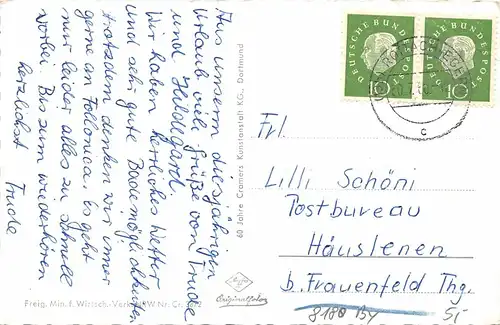 Aus unserm diesjährigen
Urlaub viele Grüße von Trude
und Hildegard.
Wir haben herrliches Wetter
und sehr gute Bademöglichkeiten
trotzdem denken wir immer
gerne an Follonica. Es geht
nur leider alles zu schnell
vorbei. Bis zum wiederhören
herzlichst
Trude
60 Jahre Cramers Kunstanstalt KG., Dortmund
DEUTSCHE BUNDESPOST
10
DEUTSCHE BUNDESPOST
10
c
Frl.
Lilli Schöni
Postbureau
Häuslenen
b. Frauenfeld Thg.
8180 By
5,-
Originalfoto
Freig. Min. f. Wirtsch.-Verk. NRW Nr. Cr.